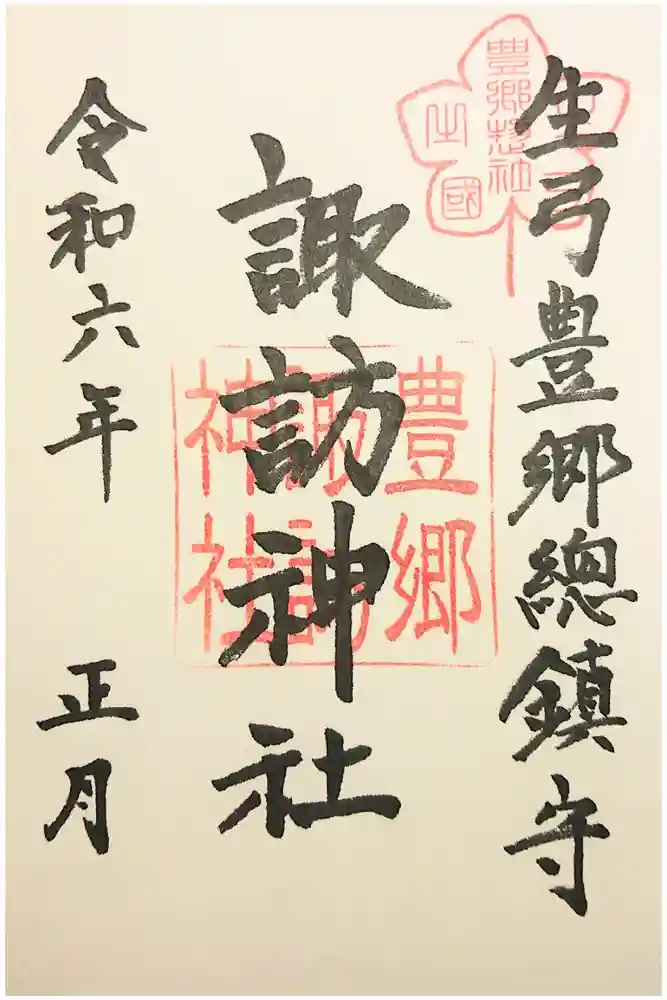 生弓豊郷總鎮守
豊郷惣社
之國
諏訪神社
豊郷
諏訪
神社
令和六年 正月